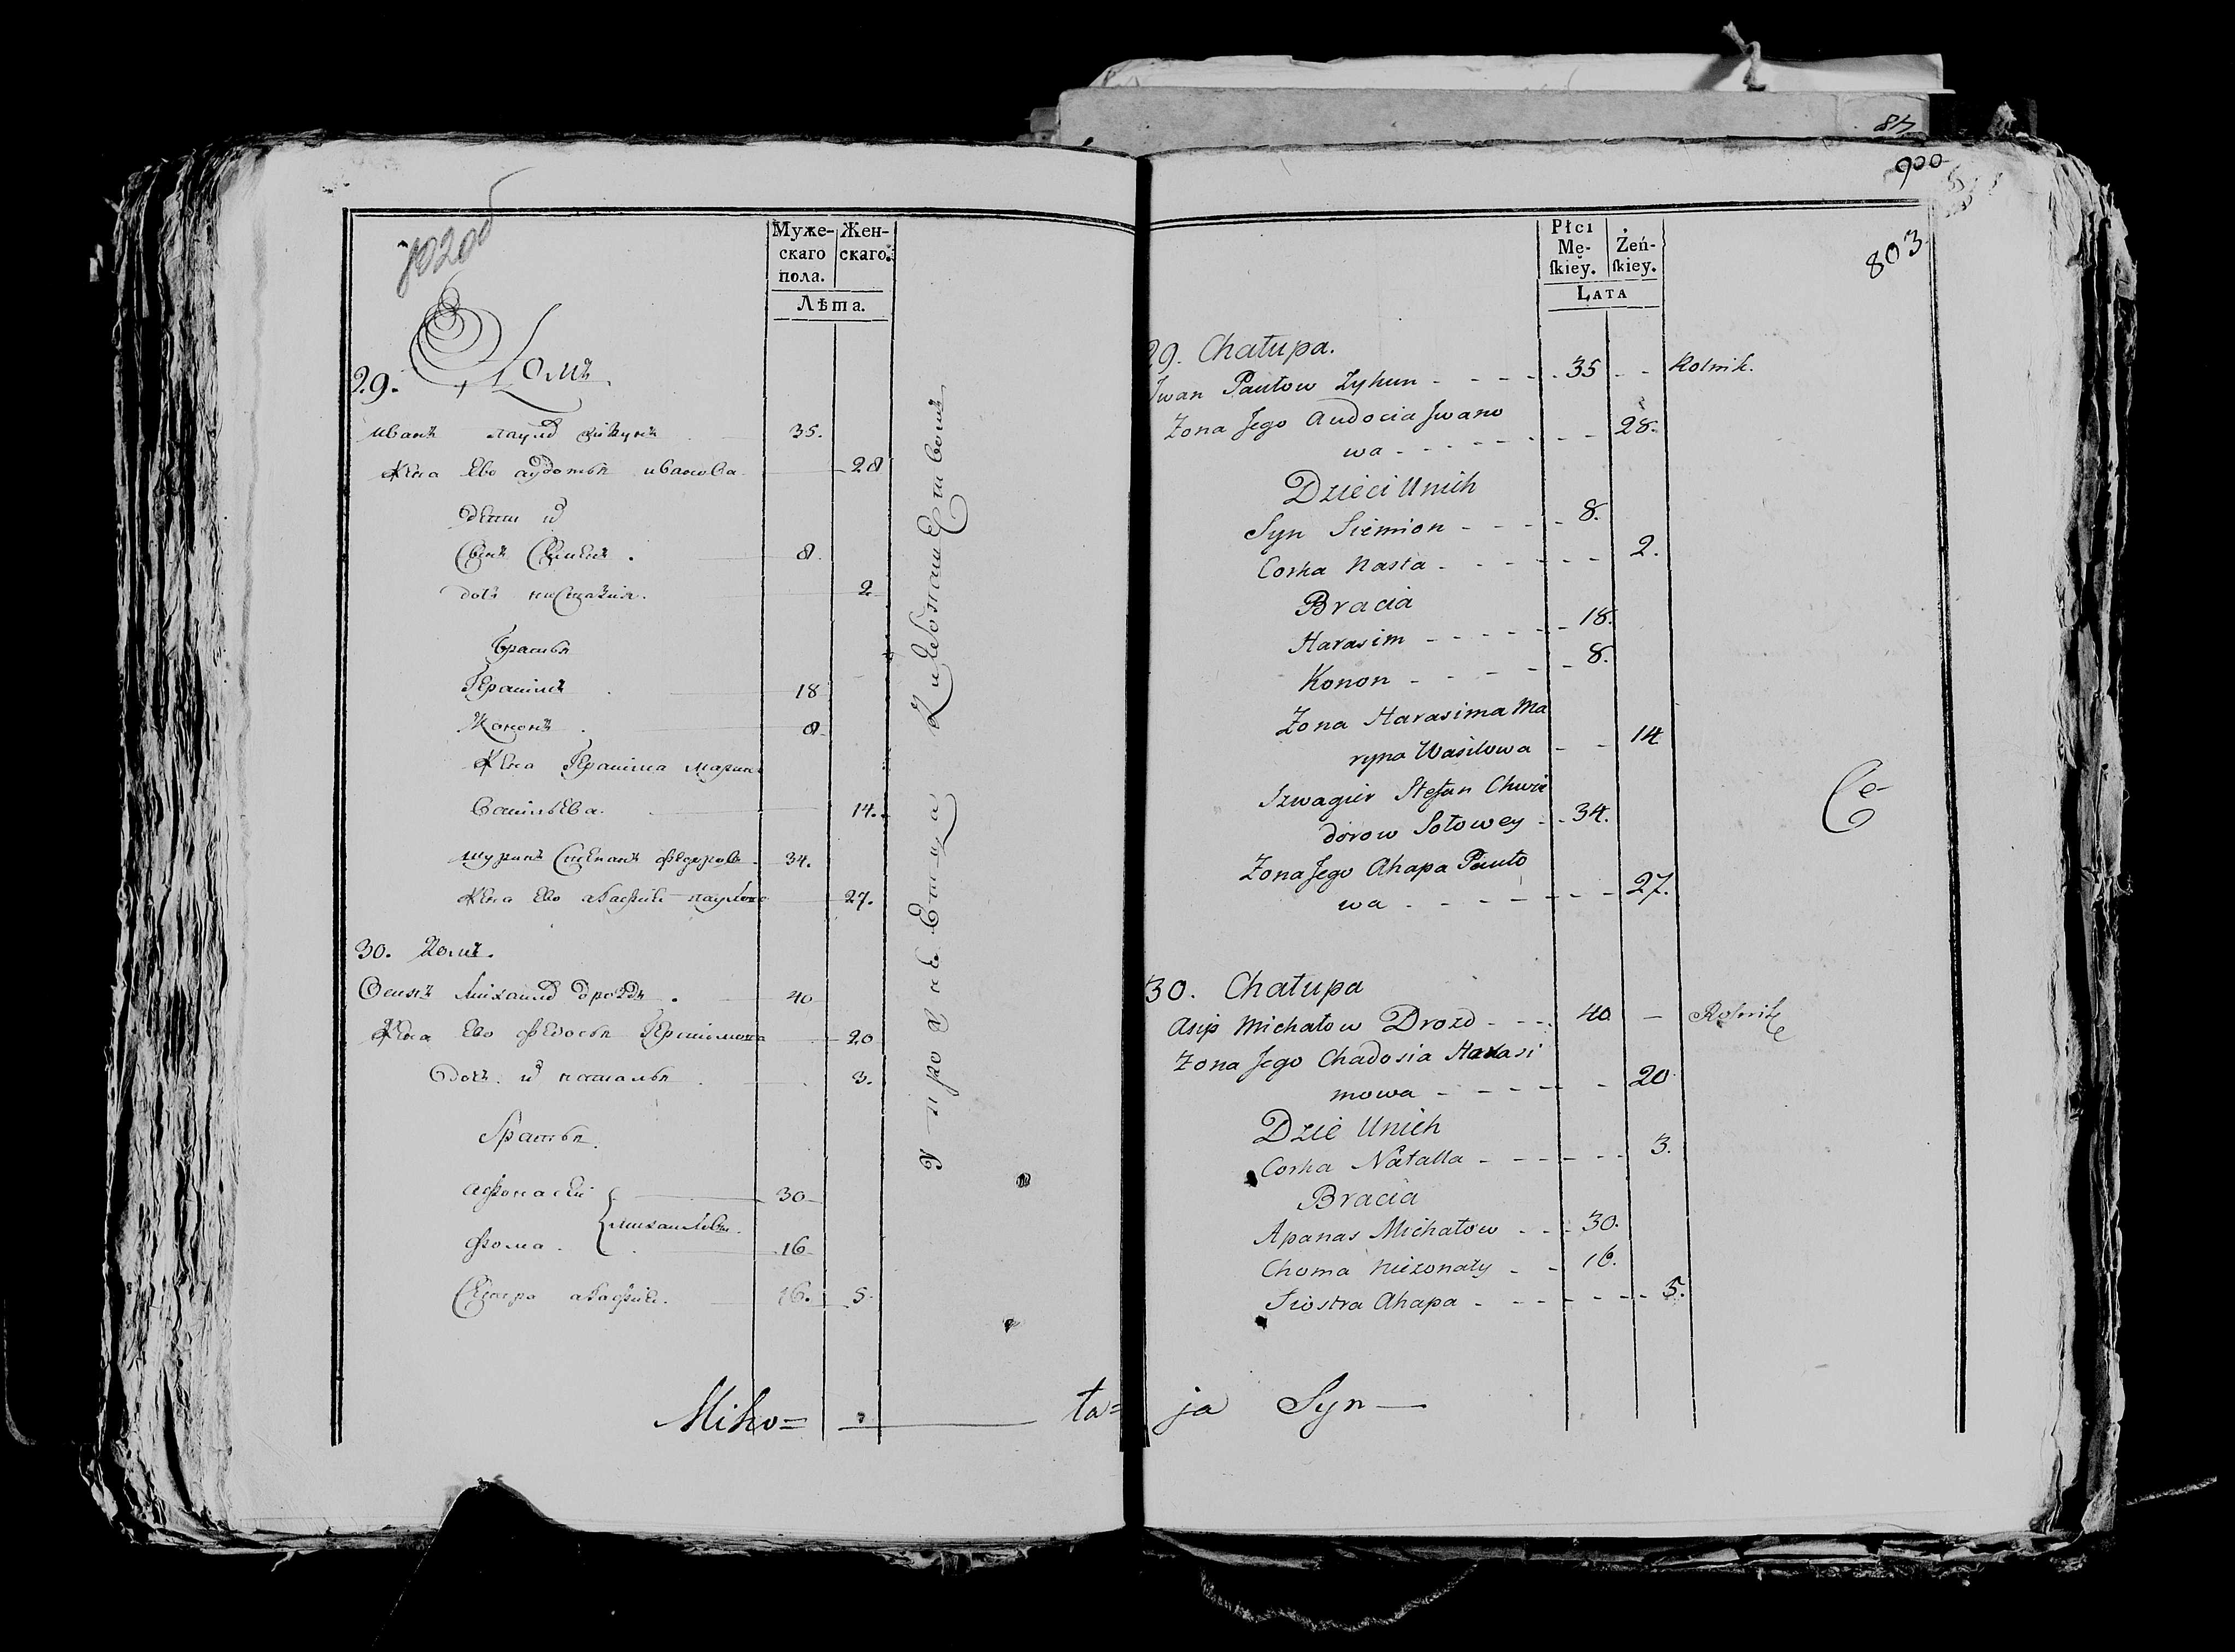 802об
Муже-
скаго
пола.
Жен-
скаго.
Лѣта.
29. Домъ
иванъ паулд зикунъ 35.
жена Ево аудотья иванова 28
дети и
Сынъ Симиѡнъ 8
дочь настазия. 2
братья
Герасимъ 18
Кононъ 8
жена Герасима марина
Васильева. 14.
шуринъ Степанъ федоровъ 34.
жена Ево агафия паулова 27.
30. Домъ.
Осипъ михаилд дроздъ 40
жена Ево федосья Герасимова 20
дочь и наталья 3.
братья.
афонасей 30
михаиловы.
фома. 16
Сестра агафия. 16. 5
Miko= ła=
48
900
803
Płci
Mę-
ſkiey.
Żeń-
ſkiey.
Lata
29. Chałupa.
Jwan Pautow Zyhun - - - - 35 - - Rolnik.
Zona Jego Audocia Jwano
wa - - - - - - - 28.
Dzieci Unich
Syn Siemion - - - - 8.
Corka Nasta - - - - - - 2.
Bracia
Harasim - - - - - - 18.
Konon - - - - - 8.
Zona Harasima Ma
ryna Wasilowa - - 14
Szwagier Stefan Chwie
dorow Sołowey - - 34.
Zona Jego Ahapa Pauło
wa - - - - - - - 27.
Ce-
30. Chałupa
Asip Michałow Drozd - - - 40 - Rolnik
Zona Jego Chadosia Harasi
mowa - - - - - 20
Dzie Unich
Corka Natalla - - - - - - 3.
Bracia
Apanas Michałow - - - 30.
Choma nieżonaty - - 16.
Siostra Ahapa - - - - - - - 5.
ja Syn